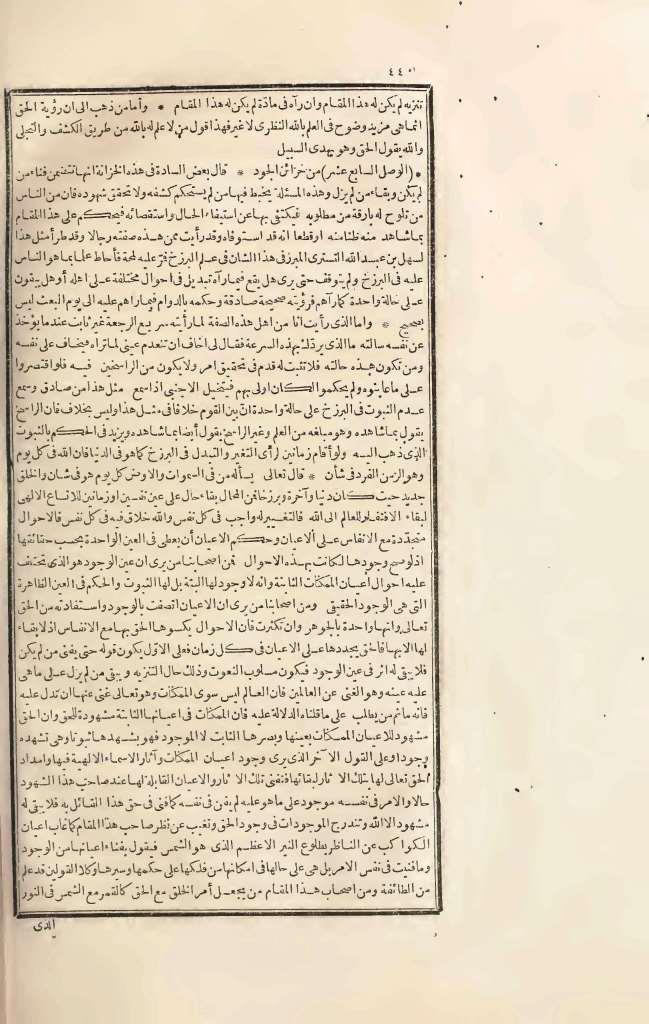 ٤٤٠
تنزيه لم يكن له هذا المقام وان رآه فى مادّة لم يكن له هذا المقام * وأمامن ذهب الى ان رؤية الحق
انماهى مزيد وضوح فى العلم بالله النظرى لا غير فهذا قول من لا علم له بالله من طريق الكشف والتجلى
والله يقول الحق وهو يهدى السبيل
* (الوصل السابع عشر) من خزائن الجود * قال بعض السادة فى هذه الخزانة انها تتضمن فناء من
لم يكن وبقاء من لم يزل وهذه المسئلة يخبط فيها من لم يستحكم كشفه ولا تحقق شهوده فان من الناس
من تلوح له بارقة من مطلوبه فيكتفى بها عن استيفاء الحال واستقصائه فيحكم على هذا المقام
بماشاهد منه ظنا منه أو قطعا انه قد استوفاه وقد رأيت ممن هذه صفته رجالا وقد طرأ مثل هذا
لسهل بن عبد الله التسترى المبرز فى هذا الشان فى علم البرزخ فمرّ عليه لمحة فأحاط علما بما هو الناس
عليه فى البرزخ ولم يتوقف حتى يرى هل يقع فيما رآه تبديل فى احوال مختلفة على اهله أو هل يبقون
على حالة واحدة كمارآهم فرؤيته صحيحة صادقة وحكمه بالدوام فيما راهم عليه الى يوم البعث ليس
بصحيح * واما الذى رأيت انا من اهل هذه الصفة لما رأيته سريع الرجعة غير ثابت عند ما يؤخذ
عن نفسه سالته ما الذى يردّك بهذه السرعة فقال لى اخاف ان تنعدم عينى لما تراه فيخاف على نفسه
ومن تكون هذه حالته فلا تثبت له قدم فى تحقيق امر ولا يكون من الراسخين فيه فلو اقتصروا
على ما عاينوه ولم يحكموا لكان اولى بهم فتخيل الاجنبى اذا سمع مثل هذا من صادق وسمع
عدم الثبوت فى البرزخ على حالة واحدة انّ بين القوم خلافا فى مثل هذا وليس بخلاف فان الراسخ
يقول بماشاهده وهو مبلغه من العلم وغير الراسخ يقول أيضا بماشاهده ويزيد فى الحكم بالثبوت
الذى ذهب اليه ولو أقام زمانين لرأى التغير والتبدل فى البرزخ كماهو فى الدنيا فان الله فى كل يوم
وهو الزمن الفرد فى شأن * قال تعالى يسأله من فى السموات والارض كل يوم هو فى شان والخلق
جديد حيث كان دنيا وآخرة وبرزخا فمن المحال بقاء حال على عين نفسين او زمانين للاتساع الالهى
لبقاء الافتقار للعالم الى الله فالتغيير له واجب فى كل نفس والله خلاق فيه فى كل نفس فالاحوال
متجدّدة مع الانفاس على الاعيان وحكم الاعيان أن يعطى فى العين الواحدة بحسب حقائقها
اذ لو صح وجودها لكانت بهذه الاحوال فمن اصحابنا من يرى ان عين الوجود هو الذى تختلف
عليه احوال أعيان الممكنات الثابتة وانه لا وجود لها البتة بل لها الثبوت والحكم فى العين الظاهرة
التى هى الوجود الحقيقى ومن اصحابنا من يرى ان الاعيان اتصفت بالوجود واستفادته من الحق
تعالى وانها واحدة بالجوهر وان تكثرت فان الاحوال يكسوها الحق بها مع الانفاس اذ لا بقاء
لها الا بها فالحق يجددها على الاعيان فى كل زمان فعلى الاوّل يكون قوله حتى يفنى من لم يكن
فلا يبقى له اثر فى عين الوجود فيكون مسلوب النعوت وذلك حال التنزيه ويبقى من لم يزل على ماهى
عليه عينه وهو الغنى عن العالمين فان العالم ليس سوى الممكنات وهو تعالى غنى عنها ان تدل عليه
فانه ماثم من يطلب على ما قلناه الدلالة عليه فان الممكنات فى اعيانها الثابتة مشهودة للحق وان الحق
مشهود للاعيان الممكنات بعينها وبصرها الثابت لا الموجود فهو يشهدها ثبوتا وهى تشهده
وجودا وعلى القول الآخر الذى يرى وجود اعيان الممكنات وآثار الاسماء الالهية فيها وامداد
الحق تعالى لها بتلك الآثار لبقائها فتفنى تلك الآثار والاعيان القابلة لها عند صاحب هذا الشهود
حالا والامر فى نفسه موجود على ماهو عليه لم يفن فى نفسه كمافنى فى حق هذا القائل به فلا يبقى له
مشهود الا الله وتندرج الموجودات فى وجود الحق وتغيب عن نظر صاحب هذا المقام كماغاب اعيان
الكواكب عن الناظر بطلوع النير الاعظم الذى هو الشمس فيقول بفناء اعيانها من الوجود
وما فنيت فى نفس الامر بل هى على حالها فى امكانها من فلكها على حكمها وسيرها وكلا القولين قد علم
من الطائفة ومن اصحاب هذا المقام من يجعل أمر الخلق مع الحق كالقمر مع الشمس فى النور
الذى